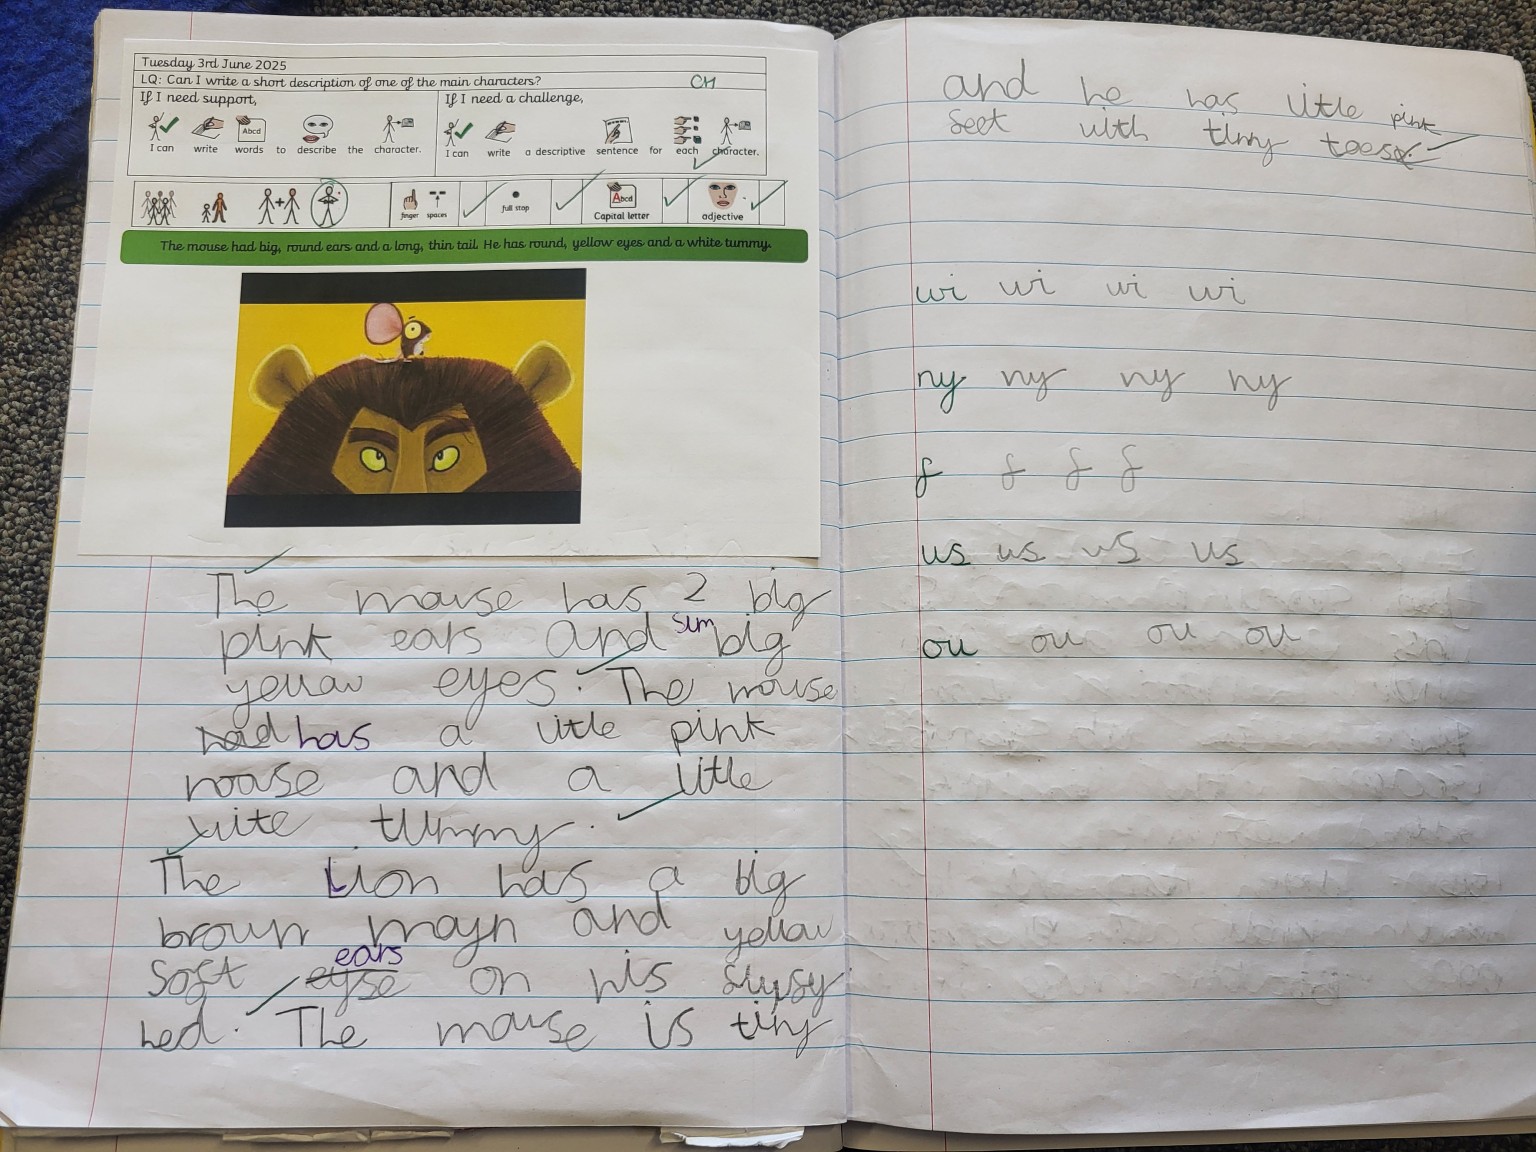 Tuesday 3rd June 2025
LQ: Can I write a short description of one of the main characters? CH
If I need support,
I can write words to describe the character.
Abcd
If I need a challenge,
I can write a descriptive sentence for each character.
finger spaces
full stop
Abcd
Capital letter
adjective
The mouse had big, round ears and a long, thin tail. He has round, yellow eyes and a white tummy.
The mouse has 2 big
pink ears and sum big
yellow eyes. The mouse
had has a little pink
noase and a little
wite tummy.
The Lion has a big
broun mayn and yellow
soft eyse ears on his
hed. The mouse is tiny
and he has little pink
feet with tinny toes
wi wi wi wi
ny ny ny ny
f f f f
us us us us
ou ou ou ou